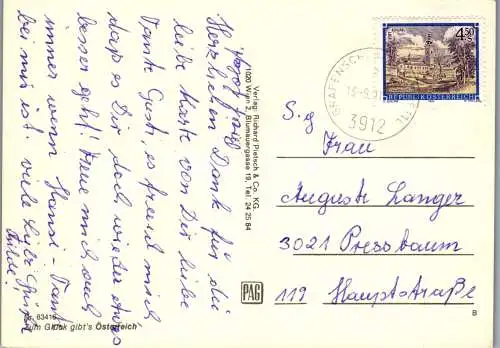 Grüß Gott!
Herzlichen Dank für die
liebe Karte von Dir liebe
Tante Gusti, es freut mich
daß es Dir doch wieder etwas
besser geht! Freue mich auch
immer wenn Hansi-Tant
bei mir ist viele liebe Grüße
Verlag: Richard Pietsch & Co. KG.
1020 Wien 2, Blumauergasse 19, Tel: 24 25 84
PAG
Nr. 83416
Zum Glück gibt's Österreich
GRAFENSCHL
3912
4.50
REPUBLIK ÖSTERREICH
S.g
Frau
Auguste Langer
3021 Pressbaum
119 Hauptstraße
B